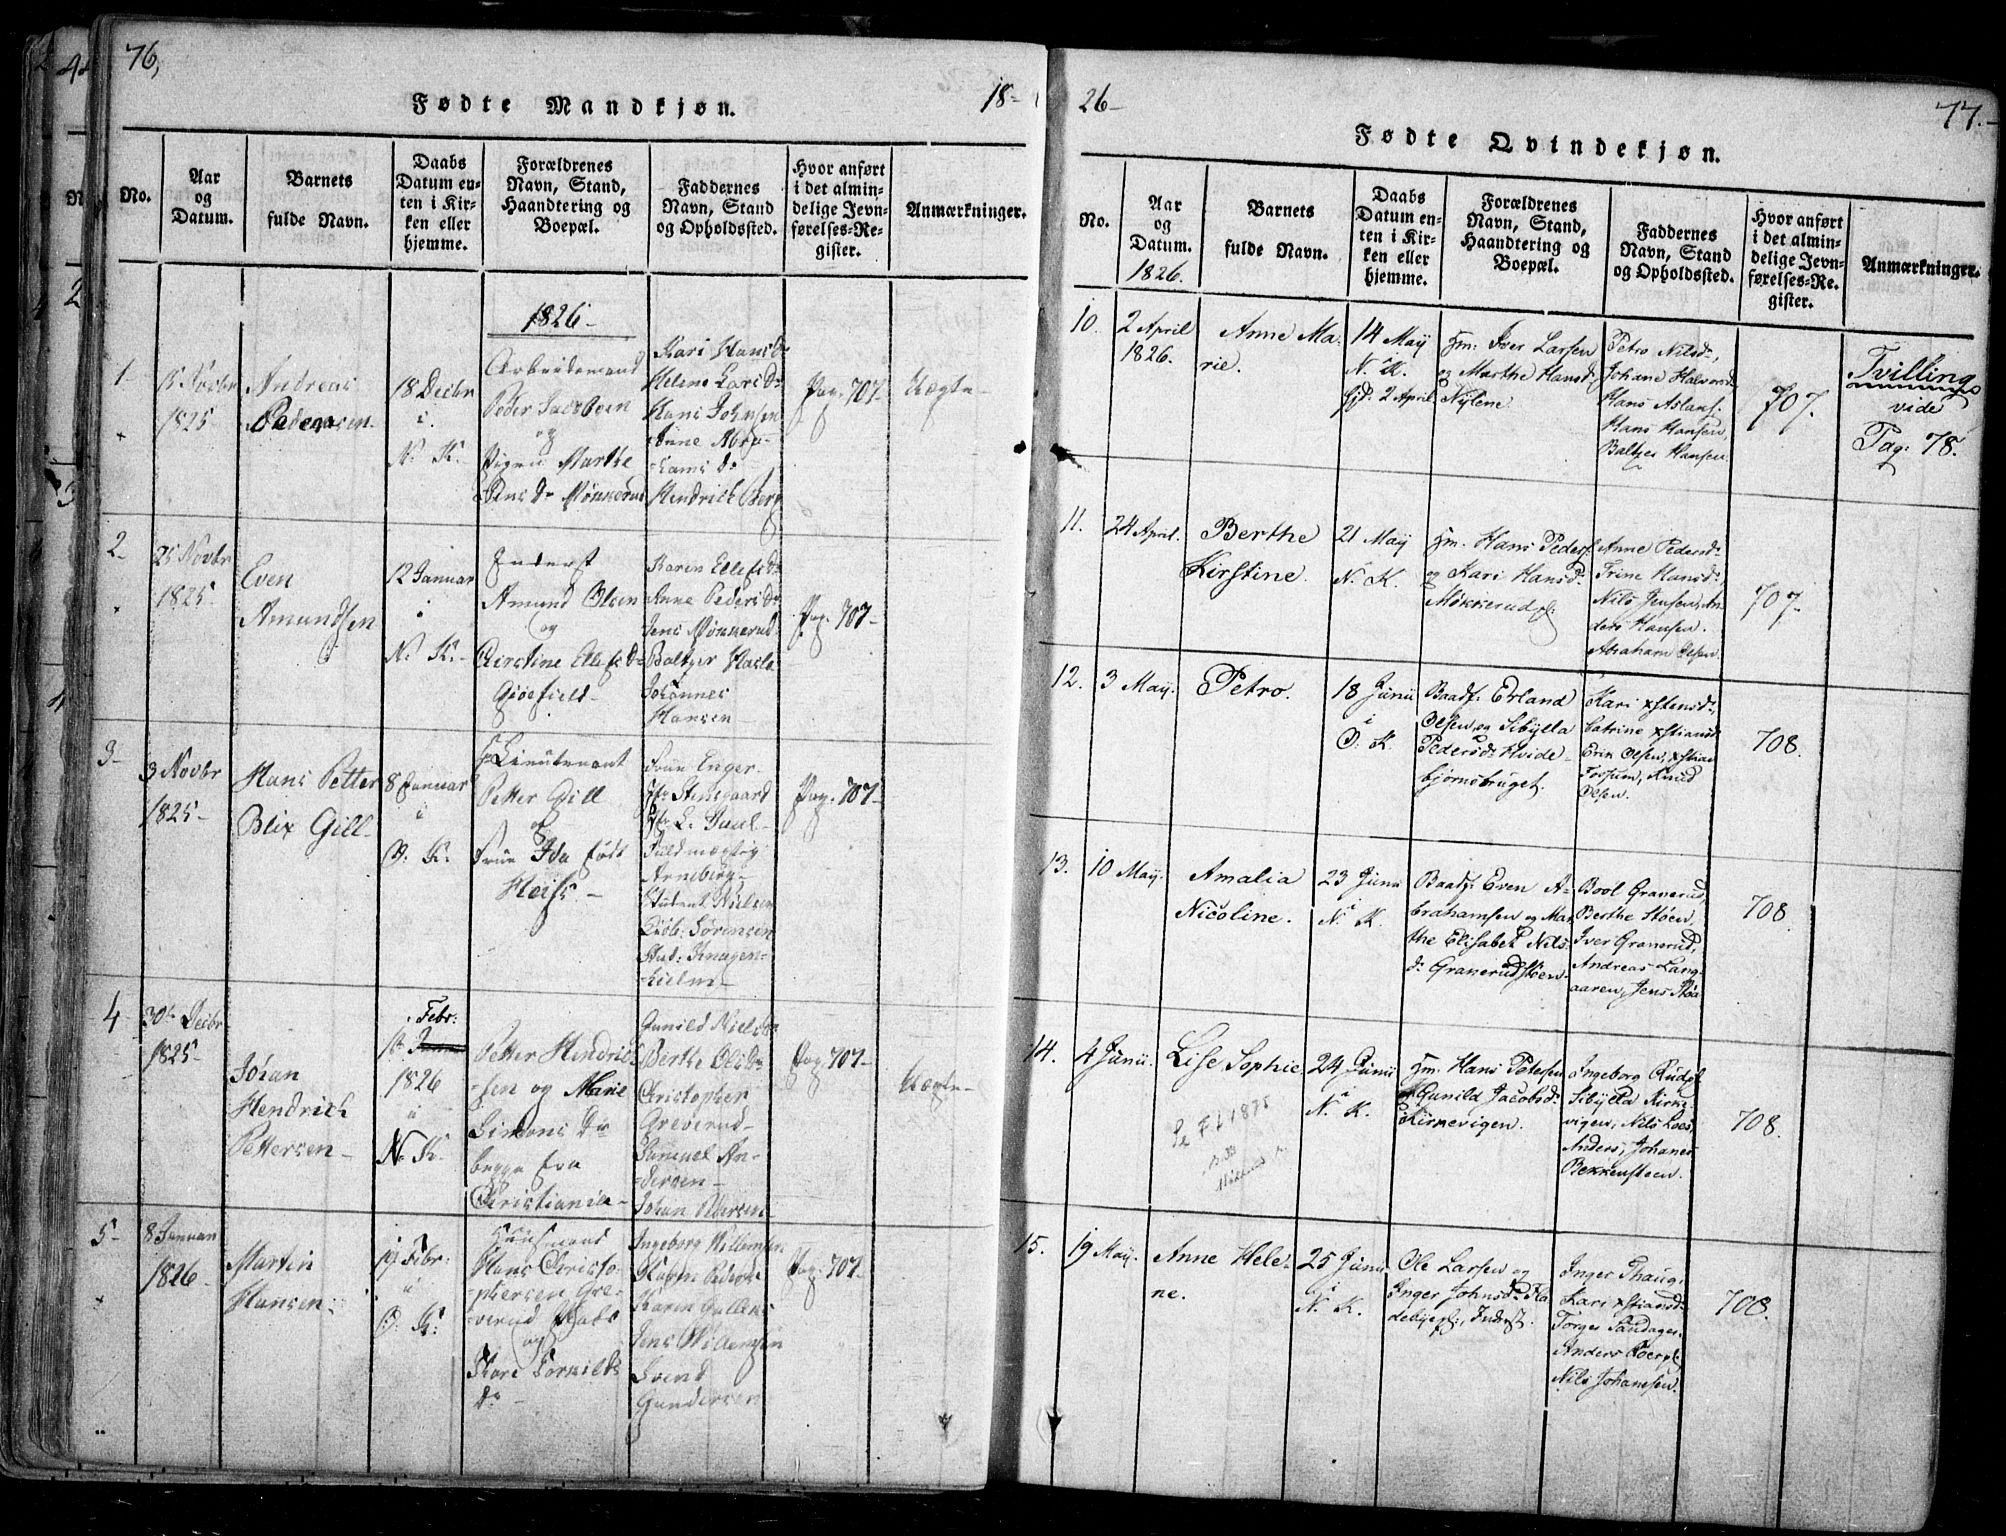 76,
Fødte Mandkjøn.
18-
No.
Aar
og
Datum.
Barnets
fulde Navn.
Daabs
Datum en-
ten i Kir-
ken eller
hjemme.
Forældrenes
Navn, Stand,
Haandtering og
Boepæl.
Faddernes
Navn, Stand
og Opholdssted.
Hvor anført
i det almin-
delige Jevn-
førelses-Re-
gister.
Anmærkninger.
1826-
1-
15 Novbr
1825-
Andreas
Pedersen
18 Decbr
i
N. K.
Arbeidsmand
Peder Jacobsen
og
Pigen Marthe
Jensdr Mönnerud
Kari Hansdr
Helene Larsdr
Hans Johnsen
Anne Abra-
hamsdr
Hendrich Berg
Pag. 707-
Uægte-
2-
25 Novbr
1825-
Even
Amundsen
12 Januar
i
N. K.-
Inderst
Amund Olsen
og
Christine Ellefsdr
Giøefield-
Karen Ellefsdr
Anne Pedersdr
Jens Mönnerud
Baltzer Hasle
Johannes
Hansen
Pag. 707-
3-
3 Novbr
1825-
Hans Petter
Blix Gill-
8 Januar
i
O. K.
Hr Lieutenant
Petter Gill
og
Frue Ida født
Heiss.-
Frue Enger
Fr Stensgaard
Hr L. Juul-
Fuldmægtig
Arneberg-
Student Nielsen
Kiöb: Sörensen
Stud: Knagen-
hielm-
Pag. 707-
4
30te Decbr
1825-
Johan
Hendrich
Pettersen-
Febr:
1826
i
N. K.
Petter Hendrich-
sen og Marie
Simonsdr
begge fra
Christiania-
Gunild Nielsdr
Berthe Olsdr
Christopher
Greverud-
Samuel An-
dersen-
Johan Larsen-
Pag. 707-
Uægte-
5-
8 Januar
1826-
Martin
Hansen-
19 Febr:
i
O. K:
Huusmand
Hans Christo-
phersen Gre-
verud
og
Kari Torkilds
dr
Ingeborg Willumsen
Karen Pedersdr
Karen
Jens Willumsen
Svend
Gundersen
Pag. 707-
26-
77.-
Fødte Qvindekjøn.
No.
Aar
og
Datum.
1826.
Barnets
fulde Navn.
Daabs
Datum en-
ten i Kir-
ken eller
hjemme.
Forældrenes
Navn, Stand,
Haandtering og
Boepæl.
Faddernes
Navn, Stand
og Opholdssted.
Hvor anført
i det almin-
delige Jevn-
førelses-Re-
gister.
Anmærkninger.
10.
2 April
1826.
Anne Ma-
rie.
14 May
i
N. K.
hjd. 2 April
Hm: Iver Larsen
og Marthe Hansd.
Nylene
Petro Nilsdr,
Johane Halvorsdr
Hans Aslaks.
Hans Hansen,
Baltzer Hansen.
707.
Tvilling
vide
Pag. 78.
11.
24 April.
Berthe
Kirstine.
21 May
i
N. K.
Hm. Hans Peders.
og Kari Hansdr
Mökkerud
Anne Pedersdr
Trine Hansdr,
Nils Jensen, An-
ders Hansen.
Abraham Olsen.
707-
12.
3 May.
Petro.
18 Junii
i
O. K.
Baadf. Erland
Olsen, og Sibylla
Pedersdr Hvide-
björnsbruget.
Kari xstensdr,
Catrine xstiansdr
Erik Olsen, xstian
Fossum, Knud
Olsen.
708.
13.
10 May.
Amalia
Nicoline.
23 Junii
i
N. K.
Baadf. Even A-
brahamsen og Mar-
the Elisabet Nils-
dr Granerudstöen-
Boel Granerud,
Berthe Stöen,
Iver Granerud,
Andreas Lang-
aaren, Jens Stöa
708.
14.
4 Junii.
Lise Sophie
Se F.L 1875
24 Junii
i
N. K.
Hm. Hans Petersen
og Gunild Jacobsdr
Kirkevigen.
Ingeborg Ruds
Sibylla Kirke-
vigen, Nils Loes,
Anders, Johanes
Bekkensteen.
708.
15.
19 May.
Anne Hele-
ne.
25 Junii
i
N. K.
Ole Larsen og
Inger Johnsdr Fla-
debyei, Inderst.
Inger Thaug,
Kari xstiansdr
Torger Sandager,
Anders
Nils Johansen.
708.